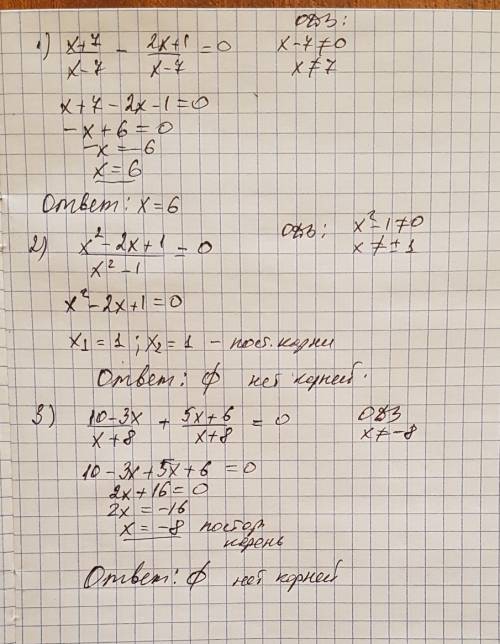 1) (x+7)/(x-7) - (2x+1)/(x-7) = 0 ОДЗ: x-7≠0
x≠7
x+7-2x-1=0
-x+6=0
-x=-6
x=6
Ответ: x=6
2) (x²-2x+1)/(x²-1) = 0 ОДЗ: x²-1≠0
x≠±1
x²-2x+1=0
x₁=1; x₂=1 - пост. корни
Ответ: ∅ нет корней.
3) (10-3x)/(x+8) + (5x+6)/(x+8) = 0 ОДЗ
x≠-8
10-3x+5x+6=0
2x+16=0
2x=-16
x=-8 постор.
корень
Ответ: ∅ нет корней